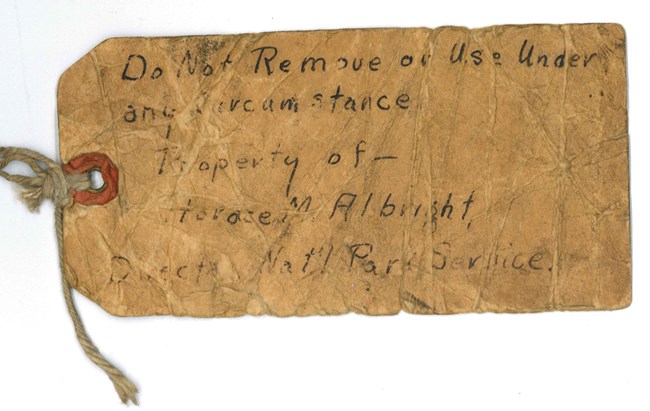 Do Not Remove or Use Under
any Circumstance
Property of —
Horace M. Albright,
Director, Nat'l Park Service.